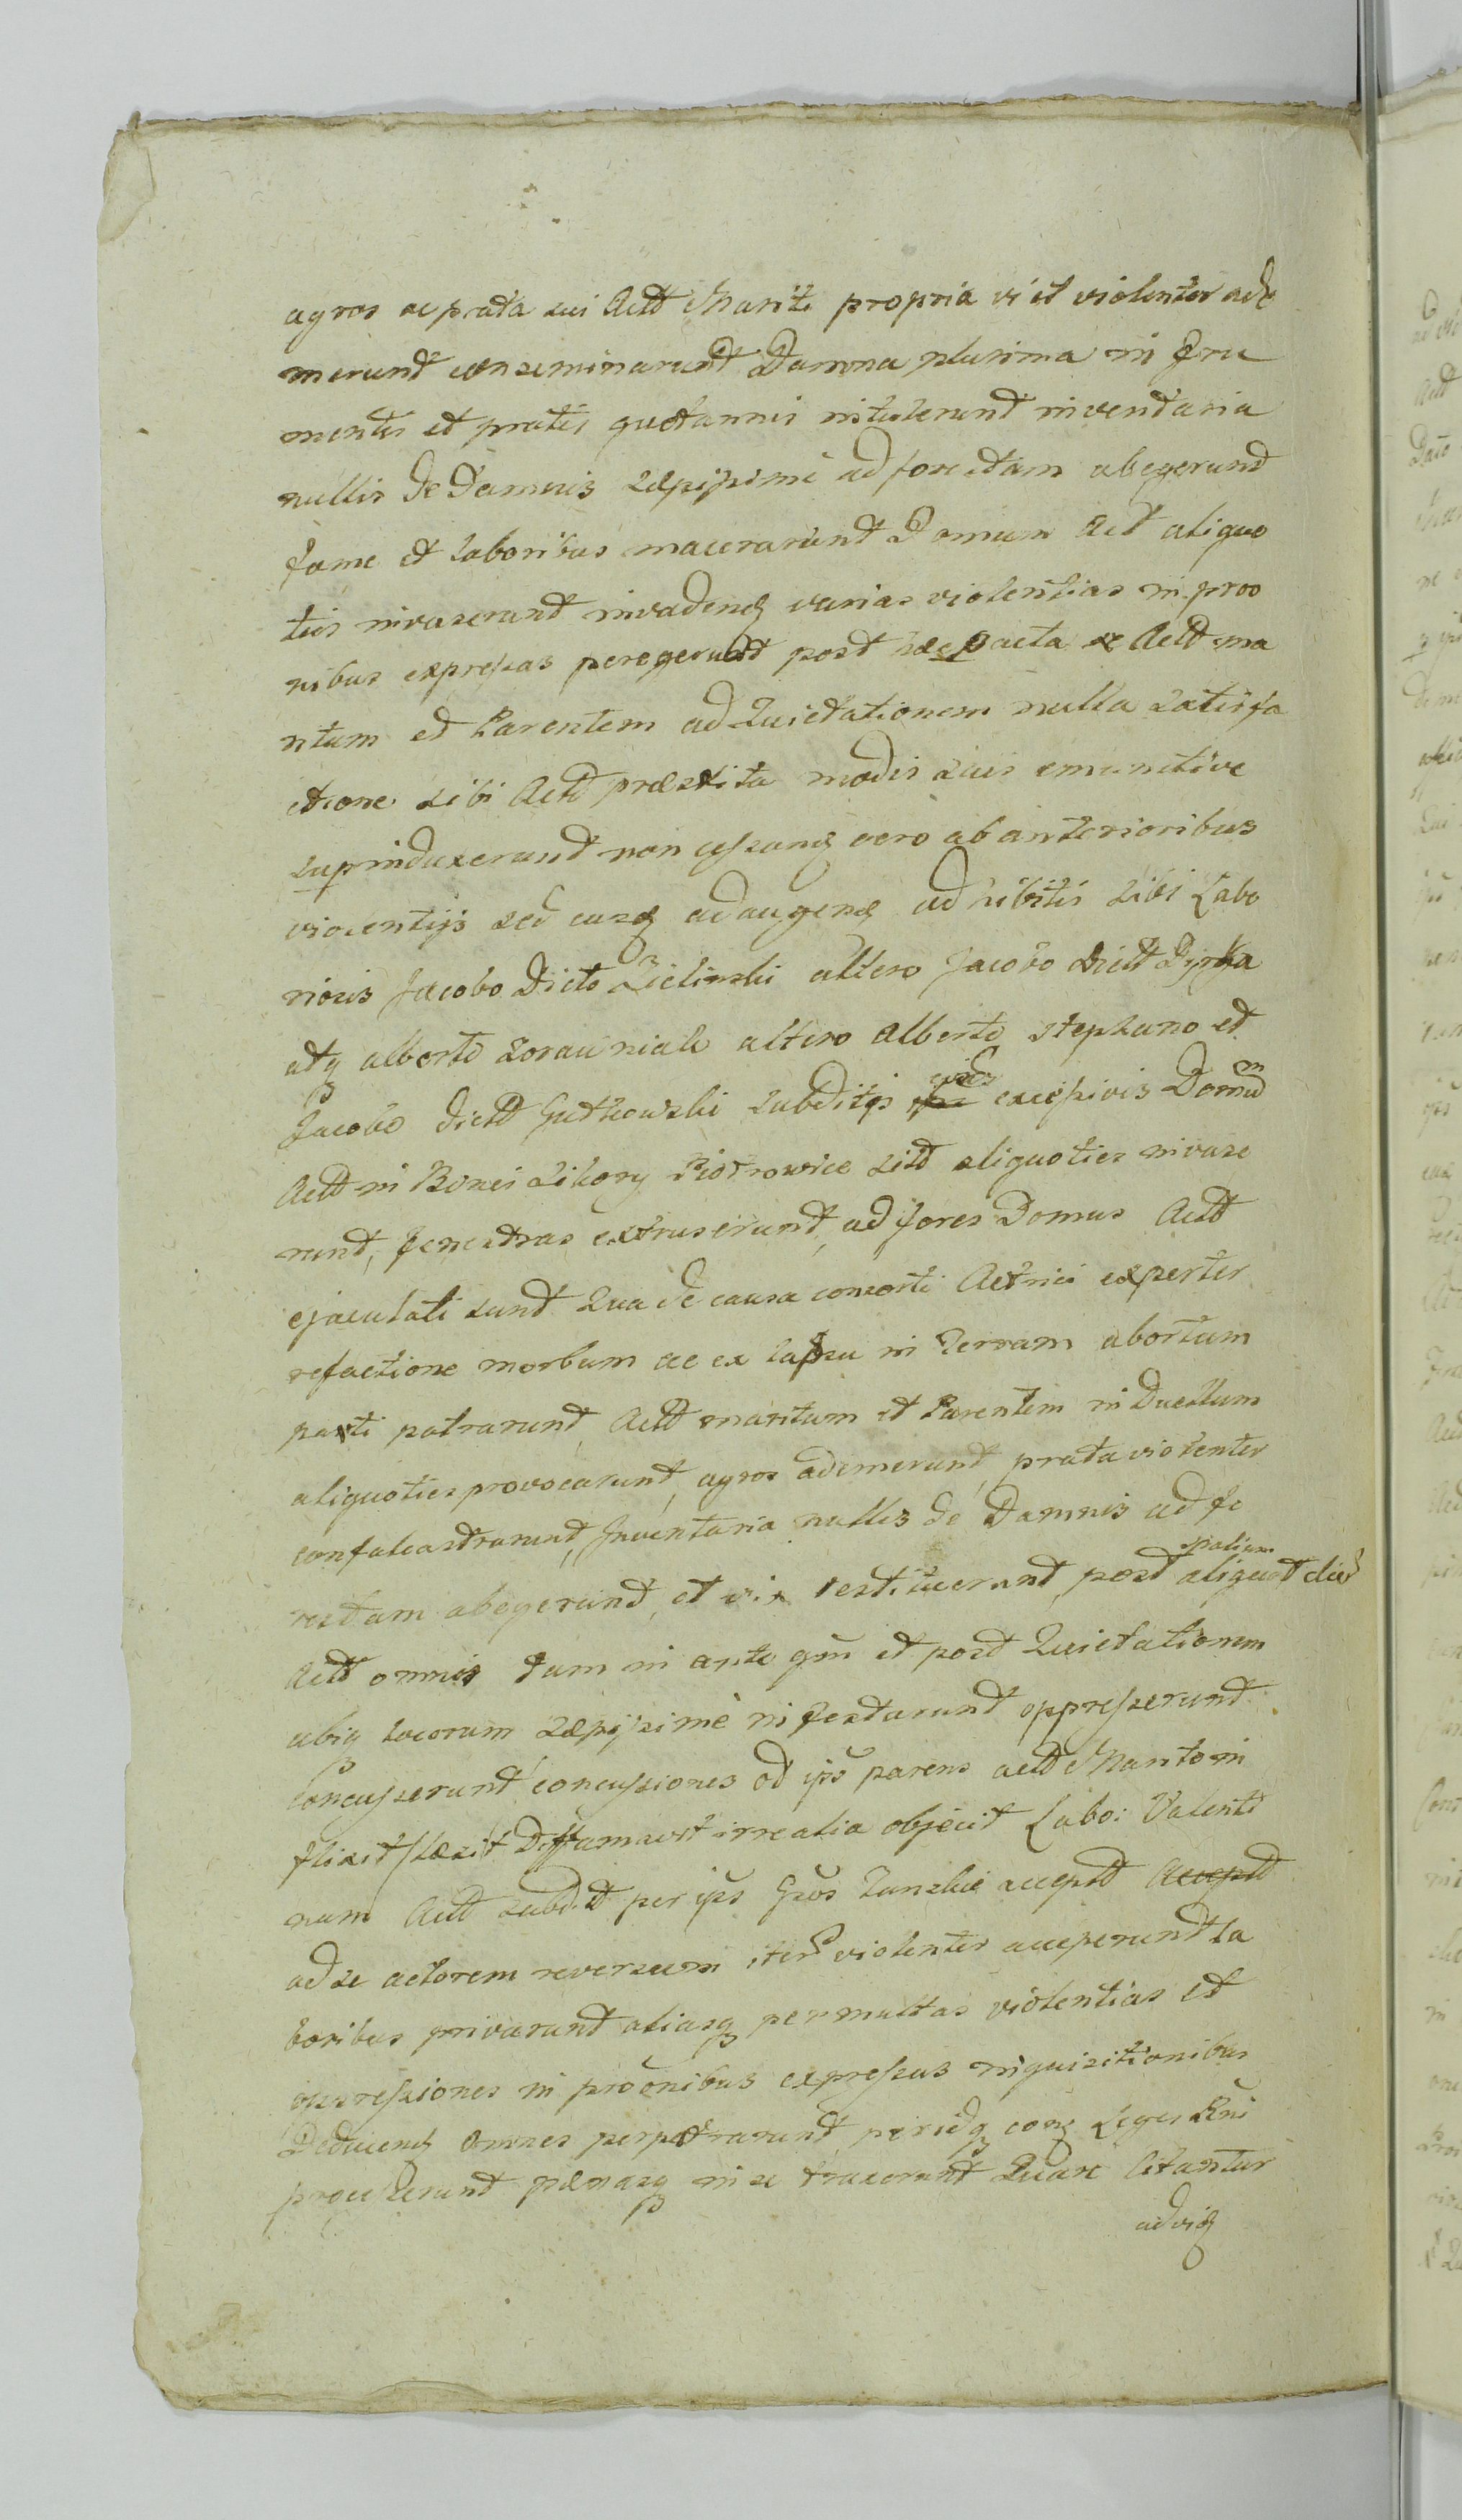 agros ac prata sui Actt Mariti propria vi et violenter ade
merunt conseminarunt Damna plurima in Fru
mentis et pratis quotannis intulerunt inventaria
nullis de Damnis sæpissimè ad forestam abegerunt
fame et laboribus macerarunt Domum Act aliquo
ties invaserunt invadend varias violentias in proo
nibus expressas peregerunt post hæc pacta ex Actt ma
ritum et Parentem ad Quietationem nulla satisfa
ctione sibi Actt præstita modis suis emunctive
supinduxerunt non cessand vero ab anterioribus
violentijs sed easq adaugend adhibitis sibi Labo
riosis Jacobo Dicto Zielinski altero Jacobo Dict
atq alberto altero Alberto Stephano et
Jacobo dictt Gutkowski subditis suis excessivis Domum
Actt in Bonis Sikory Piotrowice sitt aliquoties invase
runt, fenestras extruserunt, ad fores Domus Actt
ejaculati sunt Qua de causa consorti Actricis experter
refactione morbum ac ex lapsu in terram abortum
parti patrarunt, Actt maritum et Parentem in Duellum
aliquoties provocarunt, agros ademerunt, prata violenter
confalcastrarunt, Inventaria nullis de Damnis ad fo
restam abegerunt, et vix restituerunt, post spatium aliquot die
Actt omnis tam in ante qm et post Quietationem
ubiq locorum sæpissimè infestarunt oppresserunt
Concusserunt concussiones od ips parens actt Marito in
flixit læsit Diffamavit irrealia objecit Labo: Valenti
num Actt subdit per ips Gsos Zunskie acceptt Acceptt
ad se actorem reversum iter violenter acceperunt la
boribus privarunt aliasq permultas violentias et
oppressiones in proonibus expressas inquisitionibus
Deducend Omnes perpetrarunt, periedq cong Leges Rni
processerunt pænasq in se traxerunt Quare Citantur
advid